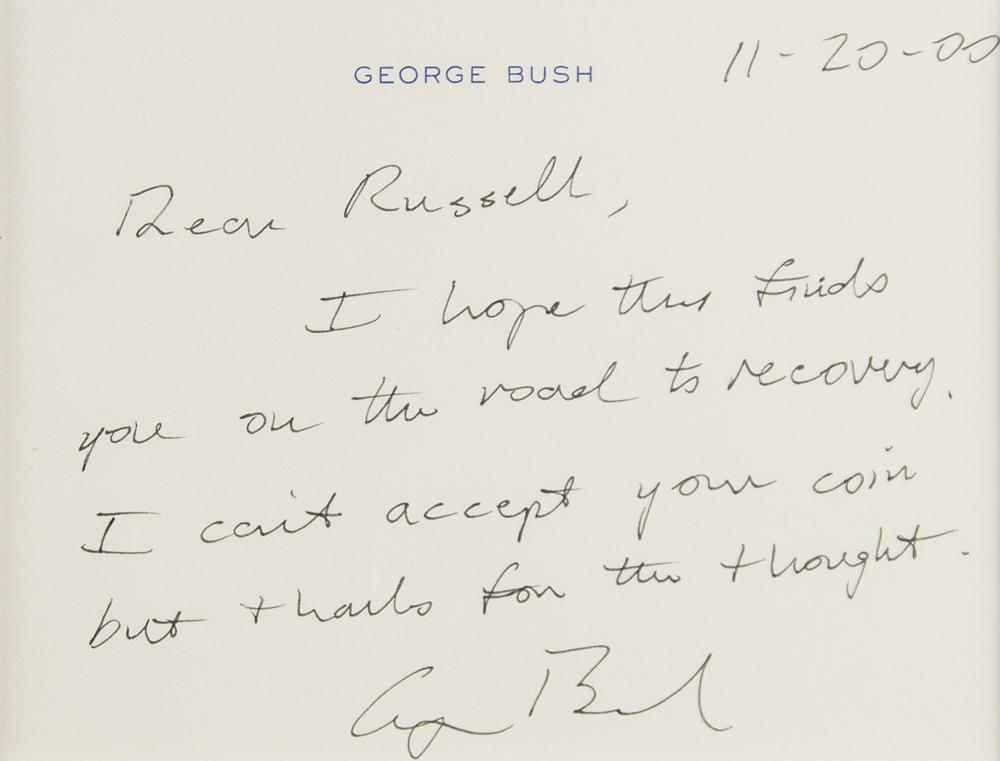 GEORGE BUSH
11-20-00
Dear Russell,
I hope this finds
you on the road to recovery.
I can't accept your coin
but thanks for the thought.
George Bush